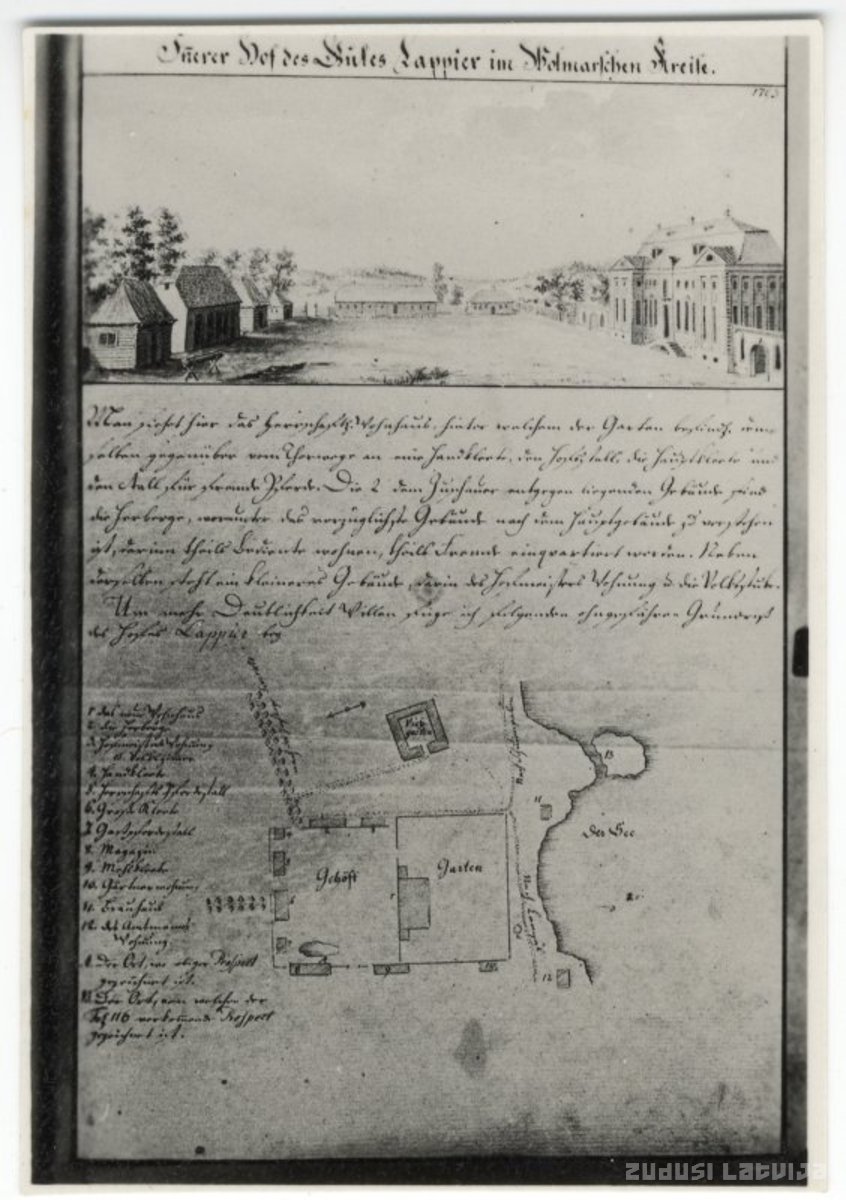 Innerer Hof des Gutes Lappier im Wolmarschen Kreise.
Man siehet hier das Herrschaftl. Wohnhaus, hinter welchem der Garten befindl. dem
selben gegenüber vom Thorwege an eine Handkleete, den Hofstall, die Hauptkleete und
den Stall für fremde Pferde. Die 2 dem Zuschauer entgegen liegenden Gebäude sind
die Herberge, worunter das vorzüglichste Gebäude nach dem Hauptgebäude zu verstehen
ist, darinn theils Bediente wohnen, theils Fremde einquartiert werden. Neben
derselben steht ein kleineres Gebäude, darin des Hofmeisters Wohnung u. die Volksstube.
Um mehr Deutlichkeit Willen füge ich folgenden ohngefähren Grundriss
des Hofes Lappier bey
1. das neue Wohnhaus
2. die Herberge
3. Hofmeisters Wohnung
u. Volkszimmer
4. Handkleete
5. Herrschaftl. Pferdestall
6. Große Kleete
7. Gastpferdestall
8. Magazin
9. Mehlkleete
10. Gärtnerwohnung
11. Brauhaus
12. des Amtmanns
Wohnung
Der Ort, wo obiger Prospect
gezeichnet ist.
Der Ort, von welchem der
116 vorkommende Prospect
gezeichnet ist.
Vieh
Gehöft
Garten
der See
11
12
13
10
9
8
ZUDUSI LATVIJA